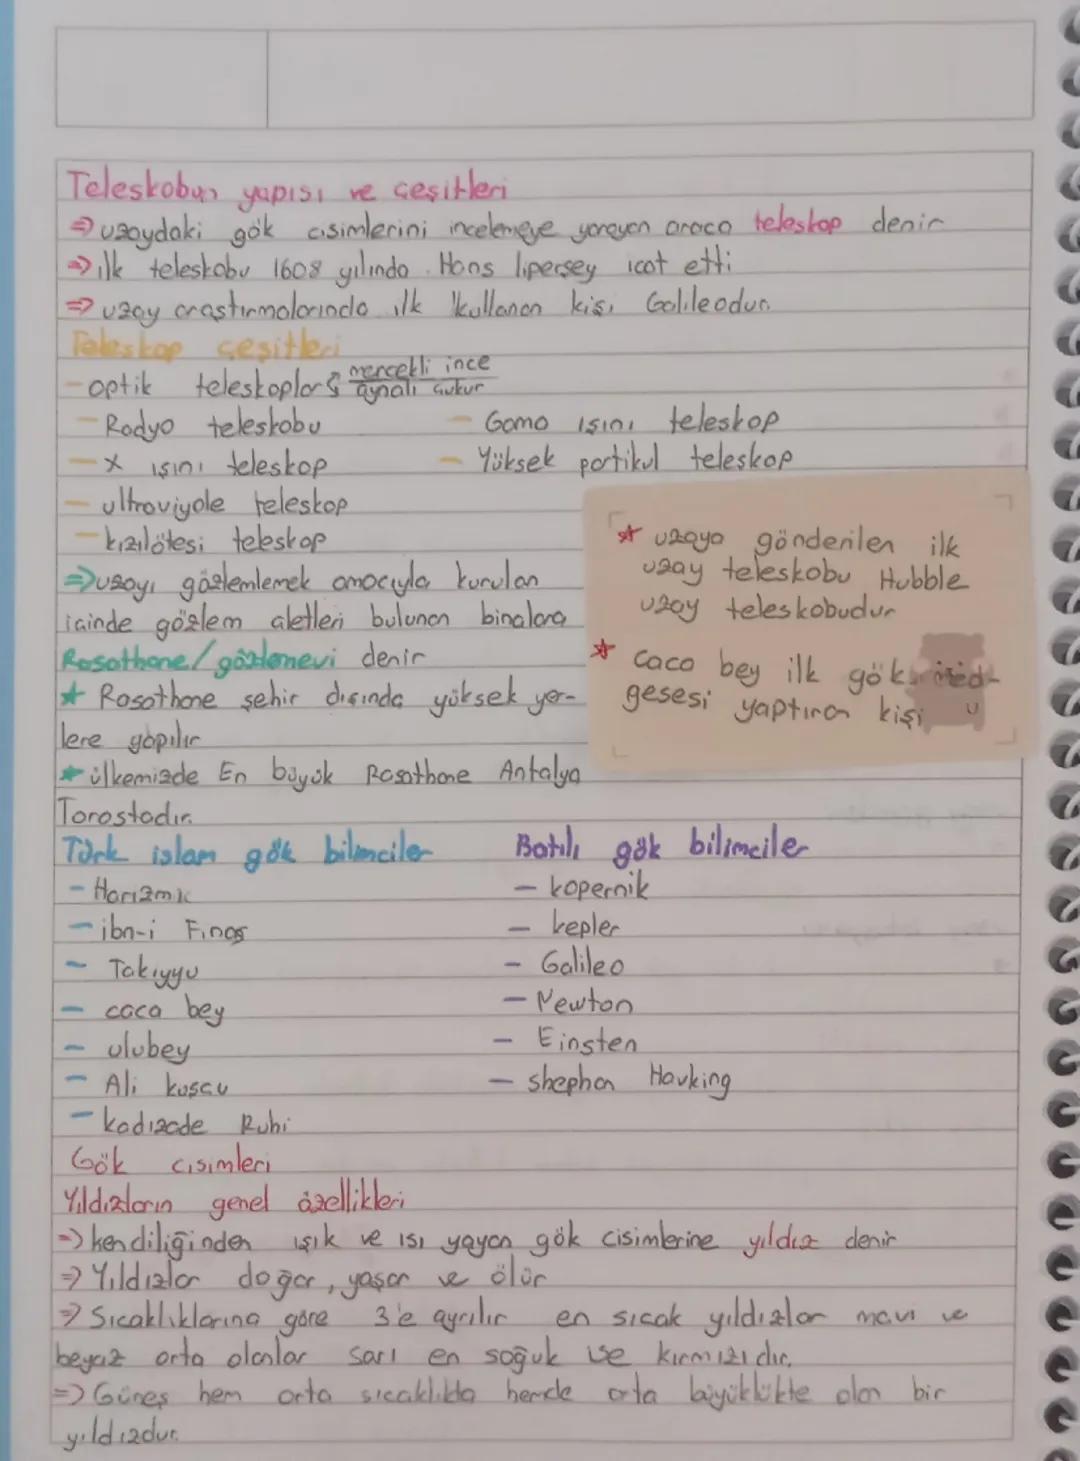 Teleskobun yapısı ve çeşitleri
⇒ uzaydaki gök cisimlerini incelemeye yarayan araca teleskop denir
⇒ ilk teleskobu 1608 yılında Hans lipersey icat etti
⇒ uzay araştırmalarında ilk kullanan kişi Galileodur.
Teleskop çeşitleri
- optik teleskoplar mercekli ince
aynalı çukur
- Radyo teleskobu
- Gama ışını teleskop
- X ışını teleskop
- Yüksek partikul teleskop
- ultraviyole teleskop
- kızılötesi teleskop
⇒ uzayı gözlemlemek amacıyla kurulan
içinde gözlem aletleri bulunan binalara
Rasathane/gözlemevi denir
★ Rasathane şehir dışında yüksek yer-
lere yapılır
★ ülkemizde En büyük Rasathane Antalya
Torostadır.
☆ uzaya gönderilen ilk
uzay teleskobu Hubble
uzay teleskobudur
☆ Caca bey ilk gök med-
gesesi yaptıran kişi
Türk islam gök bilimciler
- Harizmi
- ibn-i Finas
- Takıyyu
- caca bey
- ulubey
- Ali kuşçu
- kadızade Ruhi
Batılı gök bilimciler
- kopernik
- kepler
- Galileo
- Newton
- Einsten
- shephan Havking
Gök cisimleri
Yıldızların genel özellikleri
⇒ kendiliğinden ışık ve ısı yayan gök cisimlerine yıldız denir
⇒ Yıldızlar doğar, yaşar ve ölür
⇒ Sıcaklıklarına göre 3'e ayrılır en sıcak yıldızlar mavi ve
beyaz orta olanlar sarı en soğuk ise kırmızıdır.
⇒ Güneş hem orta sıcaklıkta hemde orta büyüklükte olan bir
yıldızdur.